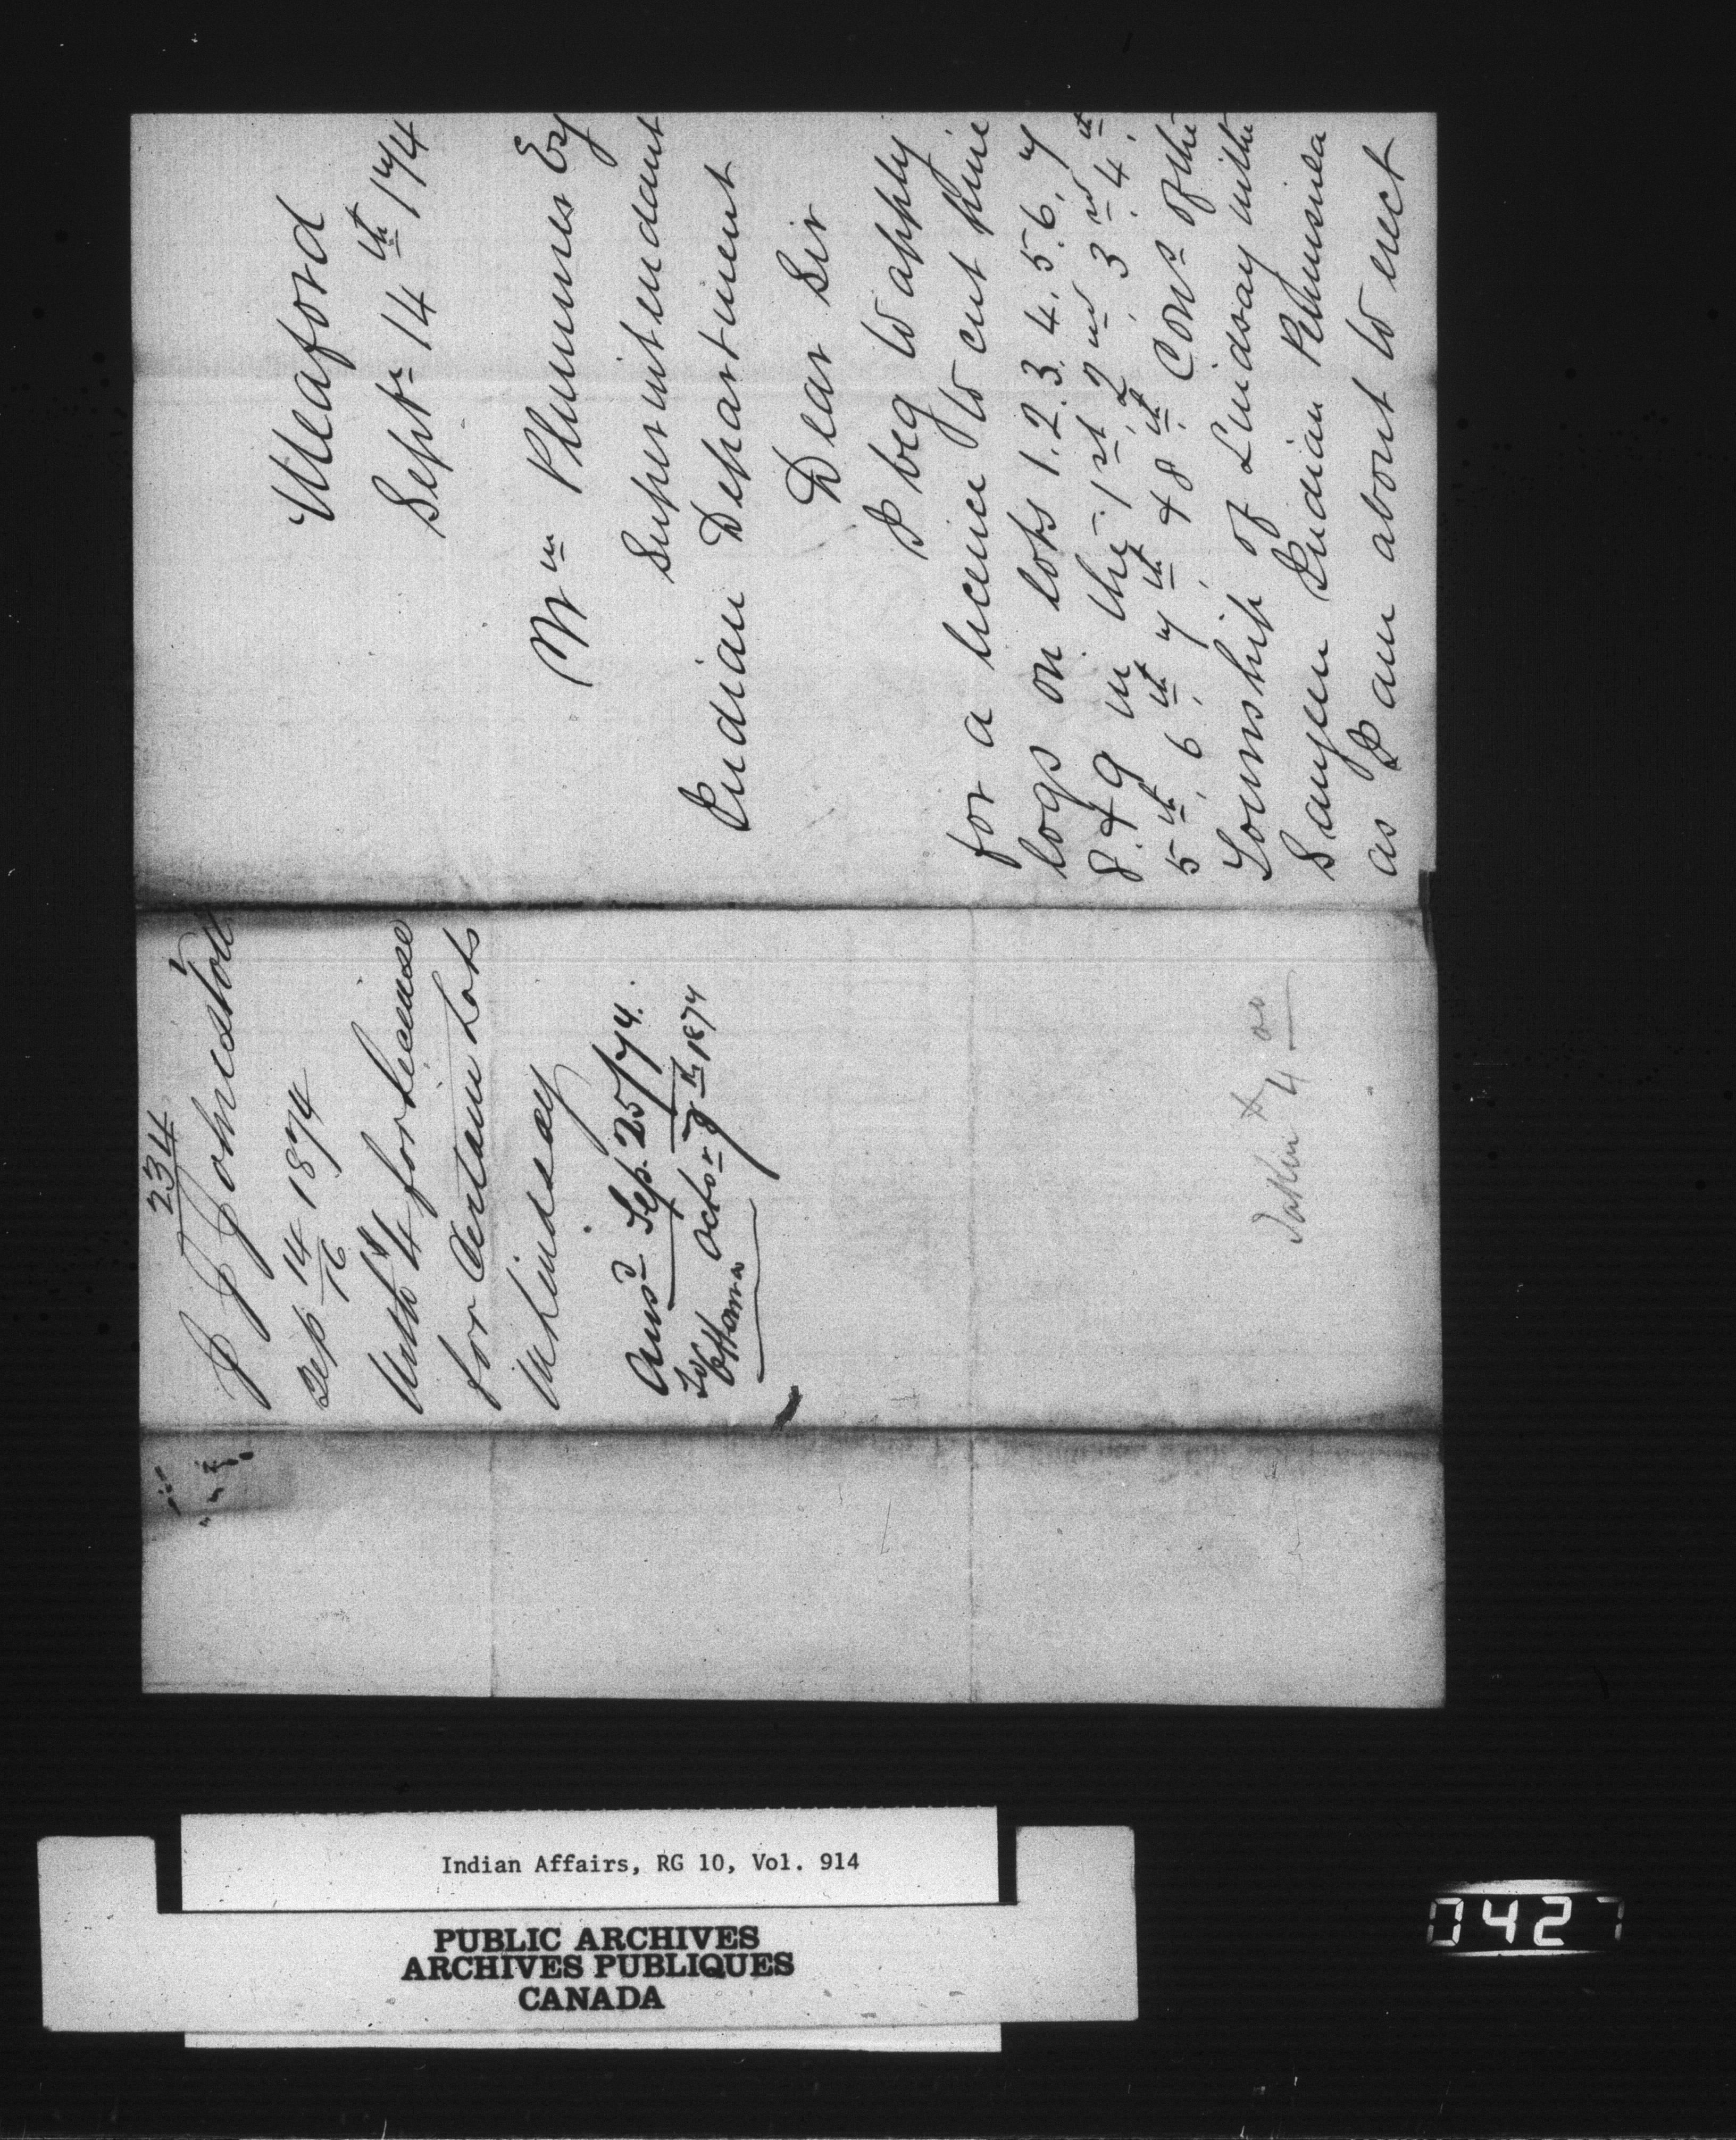 234
J J Johnston
Sep 14/16 1874
With $4 for License
for Certain Lots
in Lindsay
Ansd Sep. 25/74.
To Ottawa Octor 8th 1874
Taken $4 00
Meaford
Septr 14th 1874
Wm Plummer Esq
Superintendant
Indian Department
Dear Sir
I beg to apply
for a licence to cut pine
logs on lots 1. 2. 3. 4. 5. 6. 7
8. & 9 in the 1st, 2nd, 3rd, 4th,
5th, 6th, 7th, & 8th, Cons of the
Township of Lindsay in the
Saugeen Indian Penninsula
as I am about to erect
Indian Affairs, RG 10, Vol. 914
PUBLIC ARCHIVES
ARCHIVES PUBLIQUES
CANADA
0427